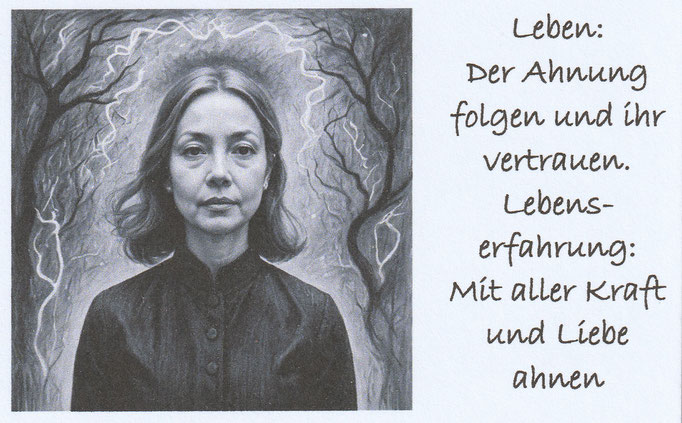 Leben:
Der Ahnung
folgen und ihr
vertrauen.
Lebens-
erfahrung:
Mit aller Kraft
und Liebe
ahnen